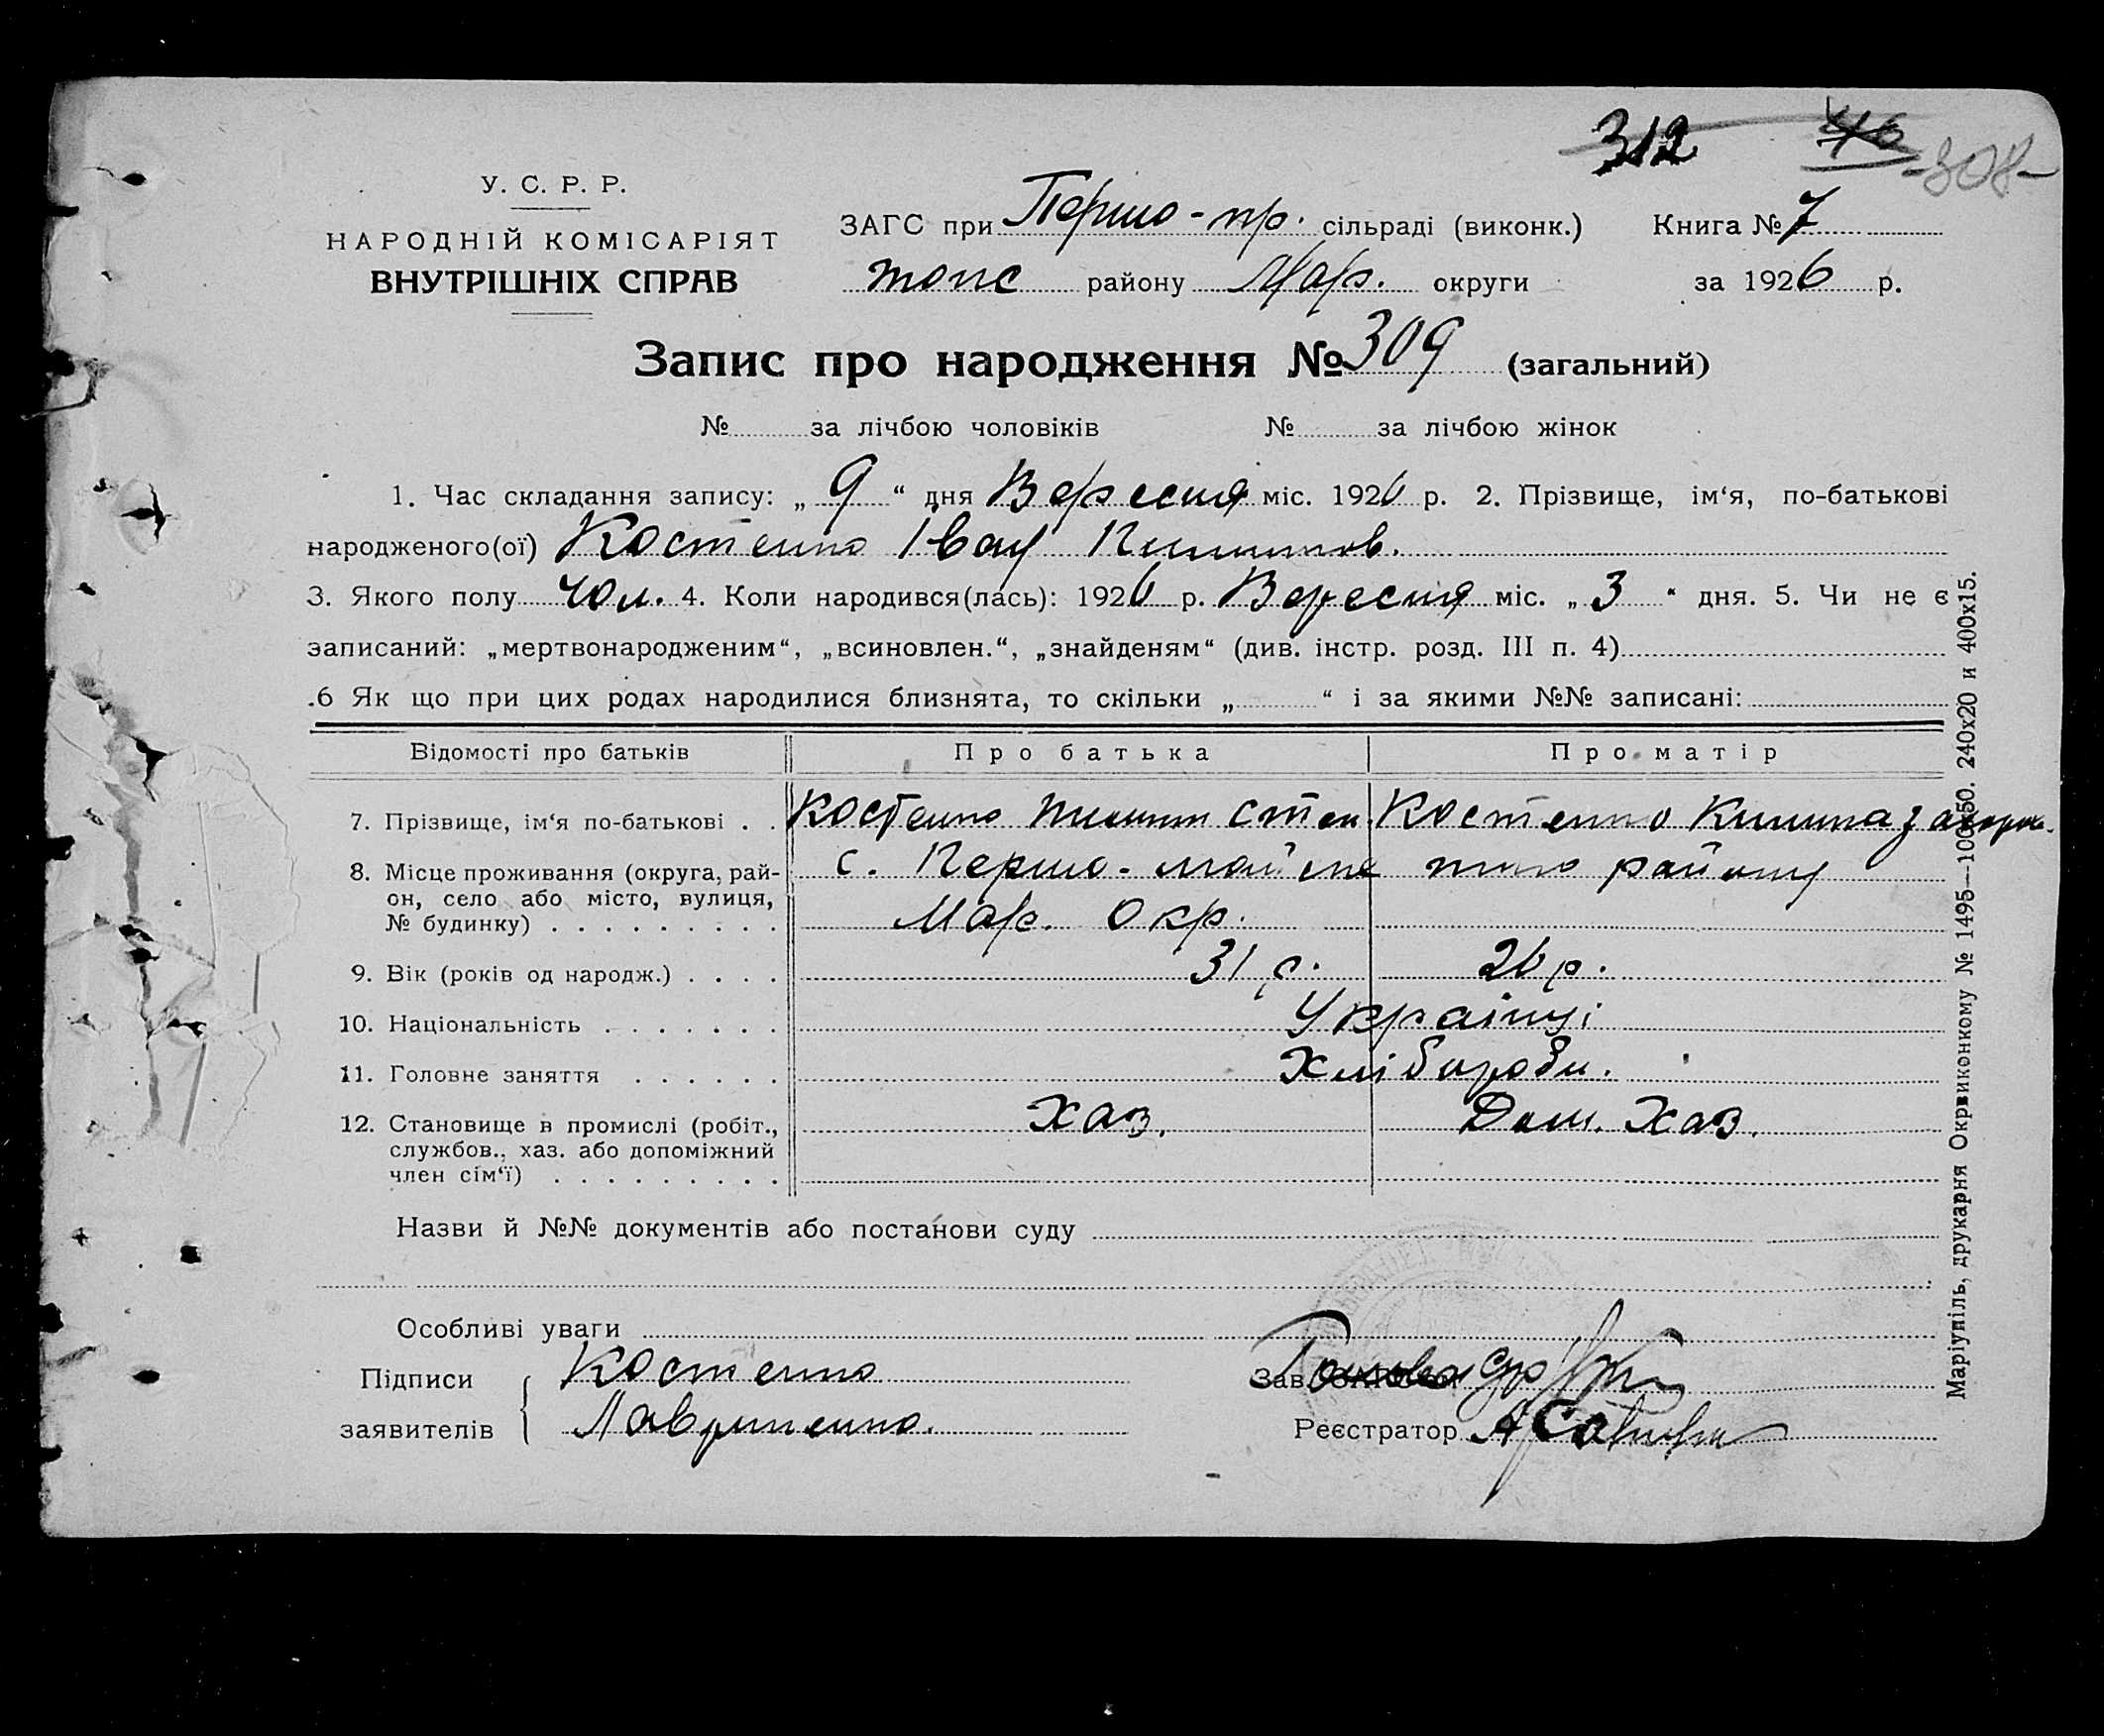 312 46 -308-
У. С. Р. Р.
НАРОДНІЙ КОМІСАРІЯТ
ВНУТРІШНІХ СПРАВ
ЗАГС при Першо-пр. сільраді (виконк.) Книга № 7
району Мар. округи за 1926 р.
Запис про народження № 309 (загальний)
№ за лічбою чоловіків № за лічбою жінок
1. Час складання запису: „ 9 “ дня Вересня міс. 1926 р. 2. Прізвище, ім‘я, по-батькові
народженого(ої) Костенко Іван
3. Якого полу чол. 4. Коли народився(лась): 1926 р. Вересня міс. „ 3 “ дня. 5. Чи не є
записаний: „мертвонародженим“, „всиновлен.“, „знайденям“ (див. інстр. розд. III п. 4)
.6 Як що при цих родах народилися близнята, то скільки „ “ і за якими №№ записані:
Відомості про батьків Про батька Про матір
7. Прізвище, ім‘я по-батькові . . Костенко Степ. Костенко
8. Місце проживання (округа, рай- с. Першо-майське району
он, село або місто, вулиця,
№ будинку) . . . . . . . . . Мар. Окр.
9. Вік (років од народж.) . . . . 31 р. 26 р.
10. Національність . . . . . . . Українці
11. Головне заняття . . . . . . Хлібороби.
12. Становище в промислі (робіт., Хаз. Дом. Хаз.
службов., хаз. або допоміжний
член сім‘ї) . . . . . . . . .
Назви й №№ документів або постанови суду
Особливі уваги
Підписи Костенко Зав. Голова
заявителів Лавриненко. Реєстратор
Маріупіль, друкарня Окрвиконкому № 1495—100x50. 240x20 и 400x15.